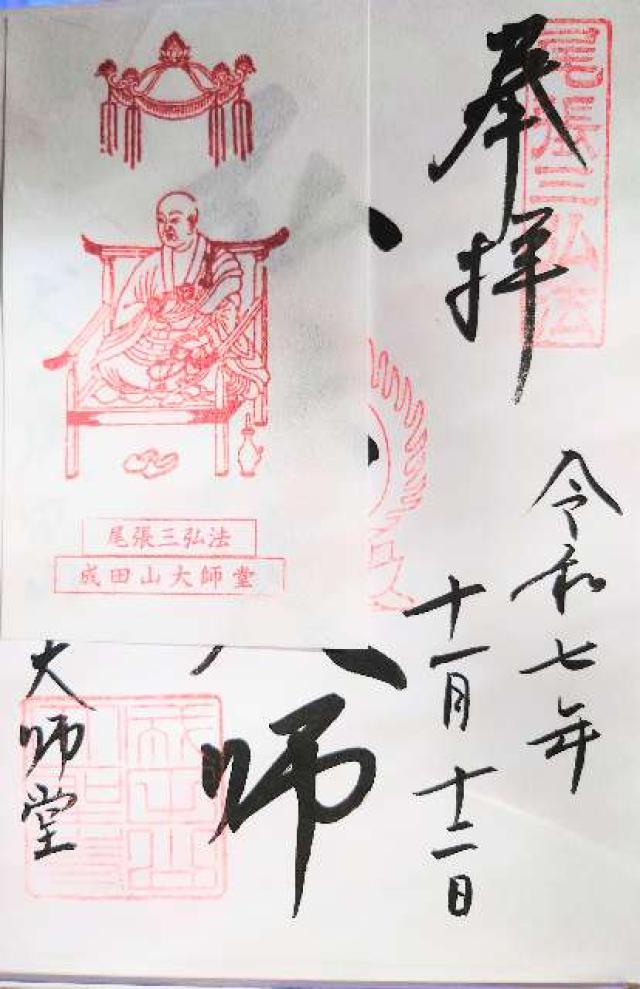 奉拝
尾張三弘法
令和七年
十一月十二日
師
大師堂
尾張三弘法
成田山大師堂